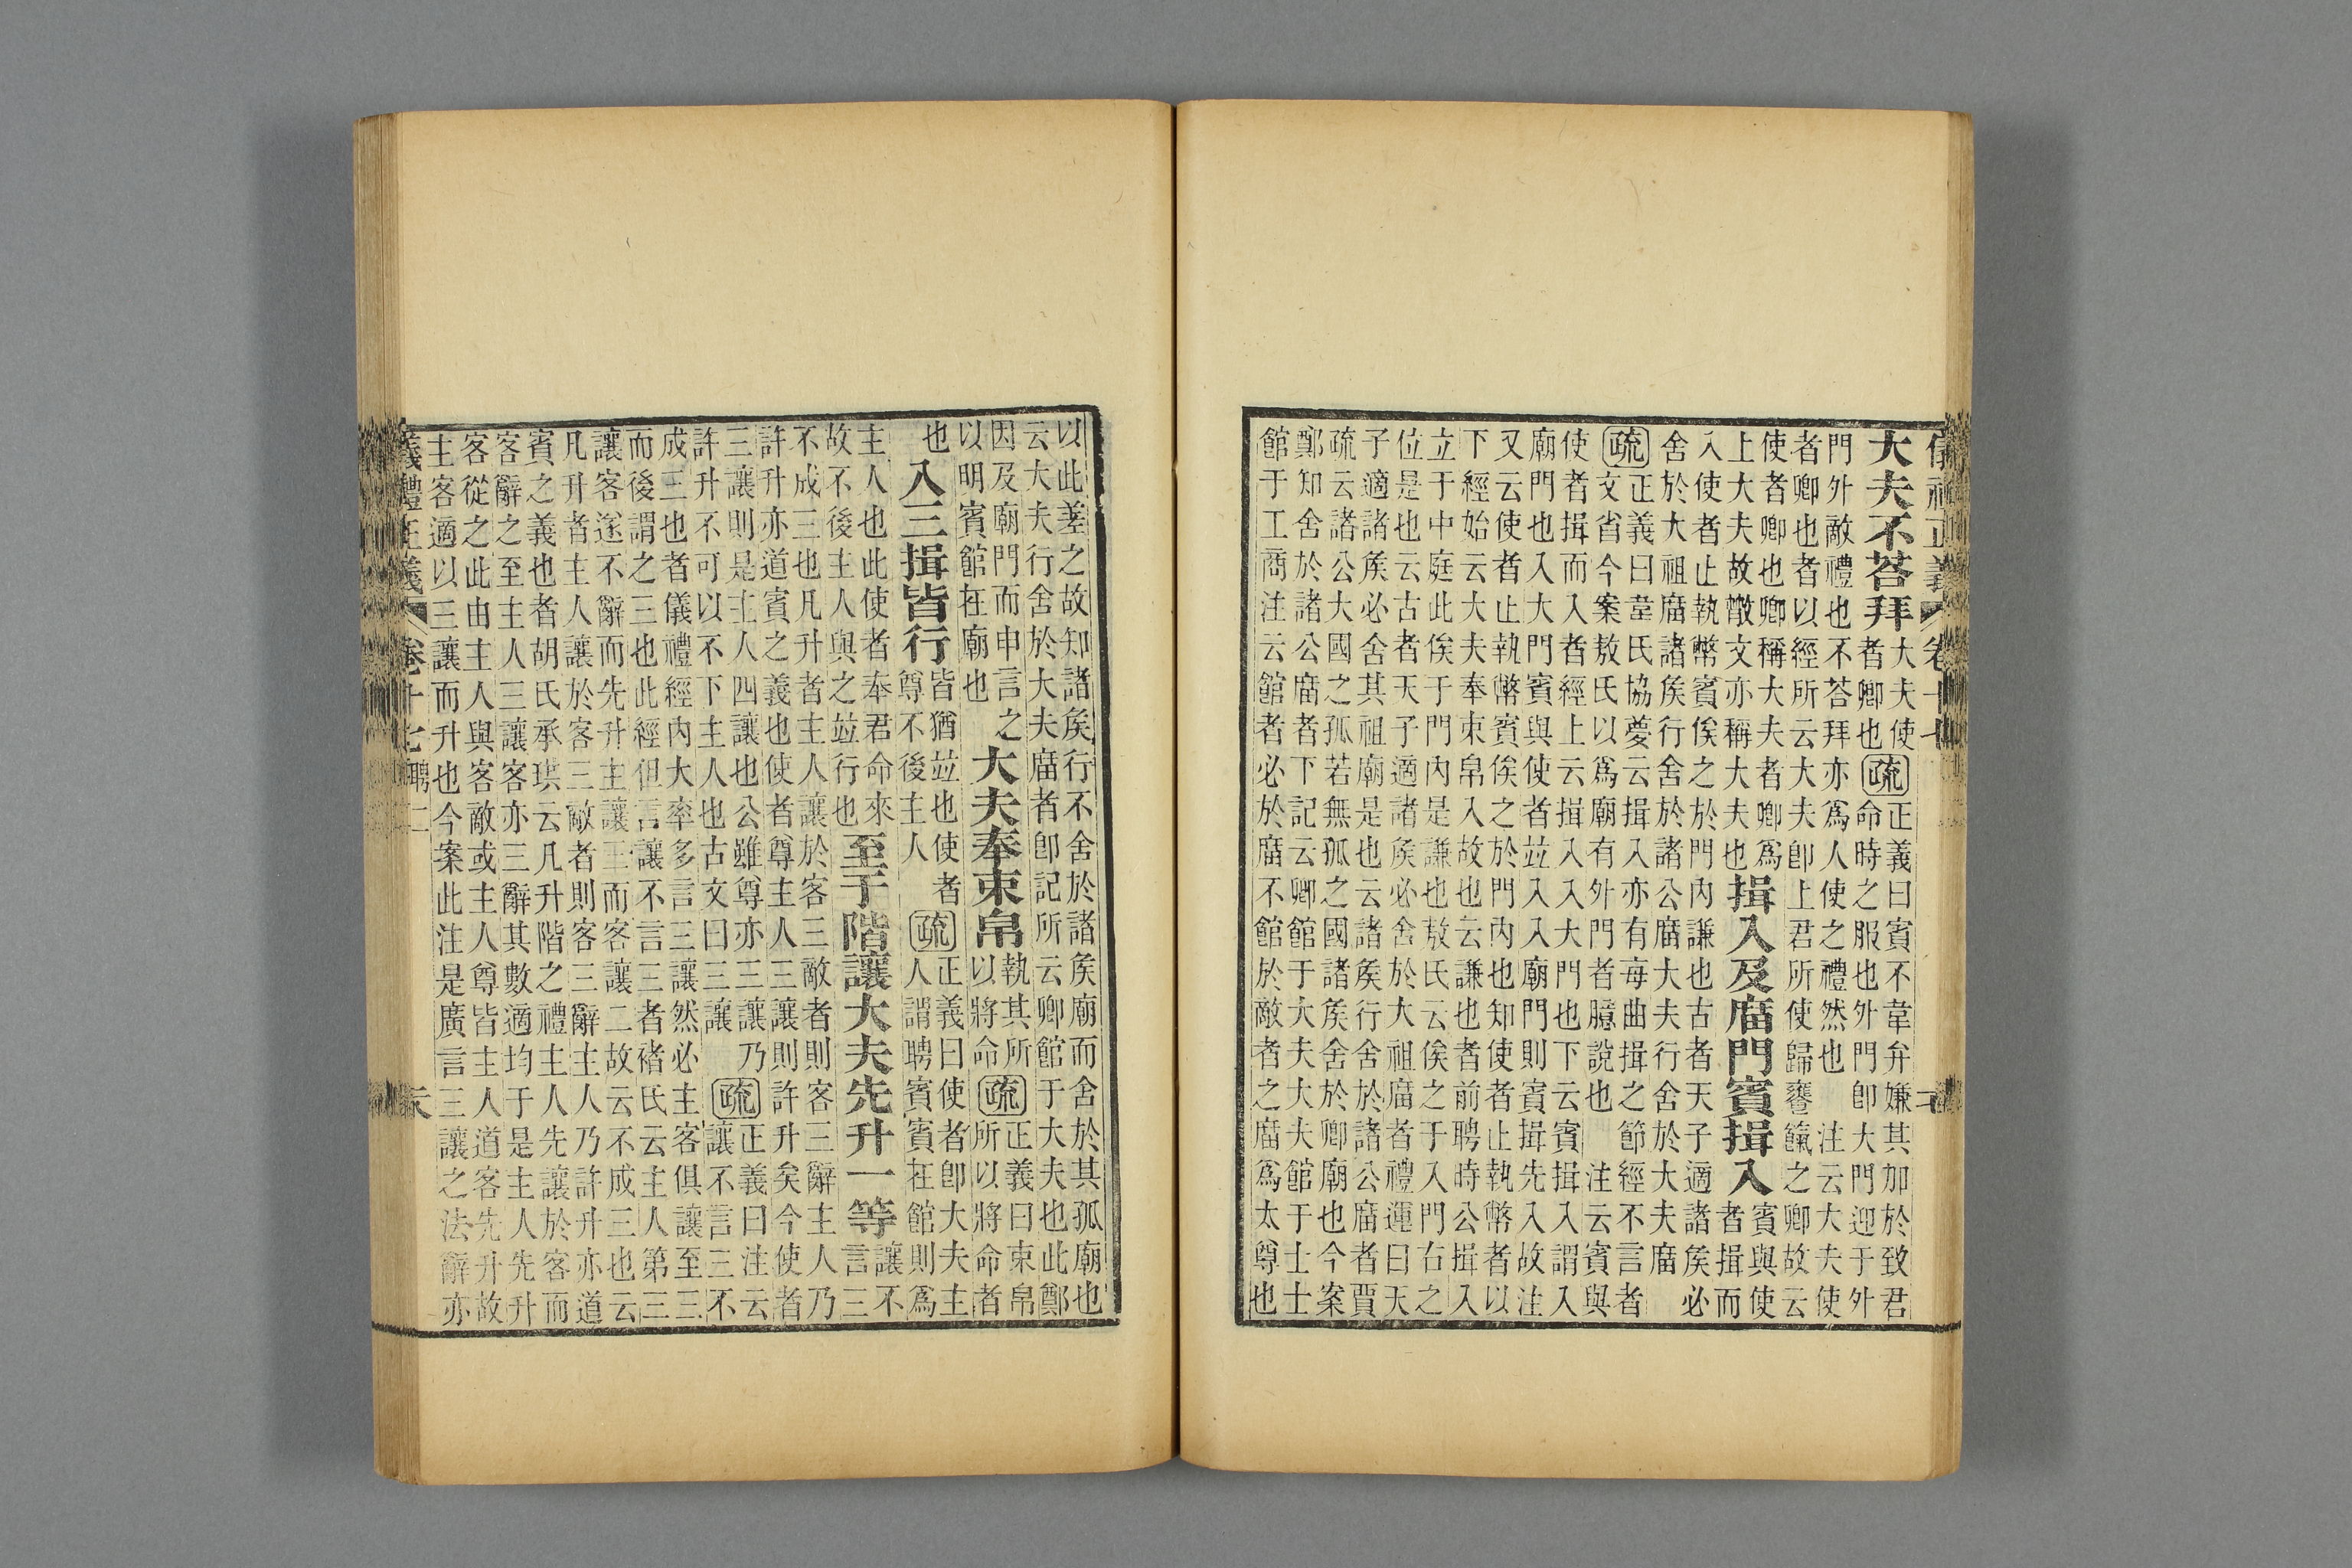 儀禮正義 卷十七
大夫不荅拜
大夫使
者卿也
疏
正義曰賓不韋弁嫌其加於致君
命時之服也外門卽大門迎于外
門外敵禮也不荅拜亦爲人使之禮然也　注云大夫使
者卿也者以經所云大夫卽上君所使歸饔餼之卿故云
使者卿也卿稱大夫者卿爲
上大夫故幣文亦稱大夫也
揖入及庿門賓揖入
賓與使
者揖而
入使者止執幣賓俟之於門內謙也古者天子適諸矦必
舍於大祖庿諸矦行舍於諸公庿大夫行舍於大夫庿
疏
正義曰韋氏協夢云揖入亦有每曲揖之節經不言者
文省今案敖氏以爲廟有外門者臆說也　注云賓與
使者揖而入者經上云揖入入大門也下云賓揖入謂入
廟門也入大門賓與使者並入入廟門則賓揖先入故注
又云使者止執幣賓俟之於門內也知使者止執幣者以
下經始云大夫奉束帛入故也云謙也者前聘時公揖入
立于中庭此俟于門內是謙也敖氏云俟之于入門右之
位是也云古者天子適諸矦必舍於大祖庿者禮運曰天
子適諸矦必舍其祖廟是也云諸矦行舍於諸公庿者賈
疏云諸公大國之孤若無孤之國諸矦舍於卿廟也今案
鄭知舍於諸公庿者下記云卿館于大夫大夫館于士士
館于工商注云館者必於庿不館於敵者之庿爲太尊也
以此差之故知諸矦行不舍於諸矦廟而舍於其孤廟也
云大夫行舍於大夫庿者卽記所云卿館于大夫也此鄭
因及廟門而申言之
以明賓館在廟也
大夫奉束帛
執其所
以將命
疏
正義曰束帛
所以將命者
也
入三揖皆行
皆猶竝也使者
尊不後主人
疏
正義曰使者卽大夫主
人謂聘賓賓在館則爲
主人也此使者奉君命來
故不後主人與之竝行也
至于階讓大夫先升一等
讓不
言三
不成三也凡升者主人讓於客三敵者則客三辭主人乃
許升亦道賓之義也使者尊主人三讓則許升矣今使者
三讓則是主人四讓也公雖尊亦三讓乃
許升不可以不下主人也古文曰三讓
疏
正義曰注云
讓不言三不
成三也者儀禮經內大率多言三讓然必主客俱讓至三
而後謂之三也此經但言讓不言三者褚氏云主人第三
讓客遂不辭而先升主讓三而客讓二故云不成三也云
凡升者主人讓於客三敵者則客三辭主人乃許升亦道
賓之義也者胡氏承珙云凡升階之禮主人先讓於客而
客辭之至主人三讓客亦三辭其數適均于是主人先升
客從之此由主人與客敵或主人尊皆主人道客先升故
主客適以三讓而升也今案此注是廣言三讓之法辭亦
儀禮正義 卷十七 聘二